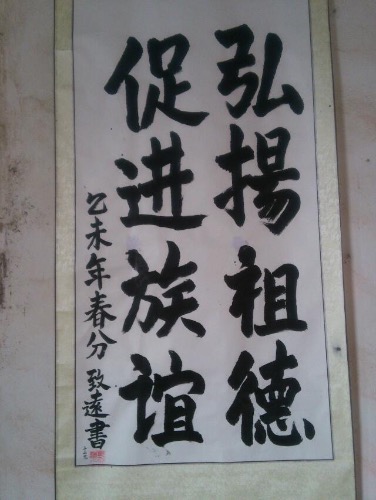 弘揚祖德
促进族谊
乙未年春分 致遠書